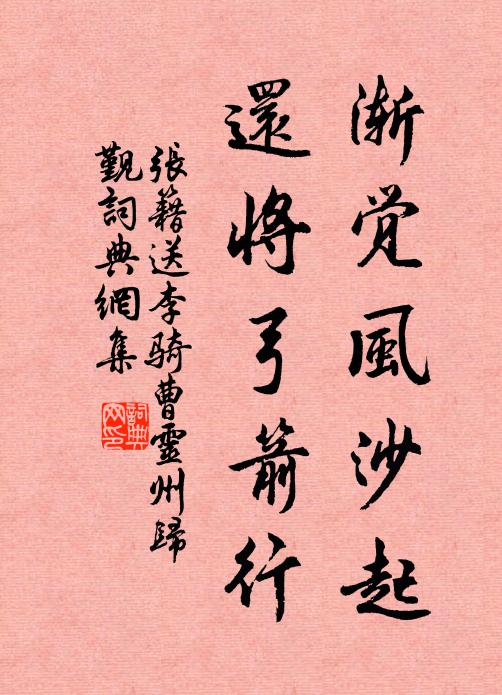 渐觉風沙起
還將弓箭行
張籍送李骑曹靈州歸
觐詞典網集
詞典
网印